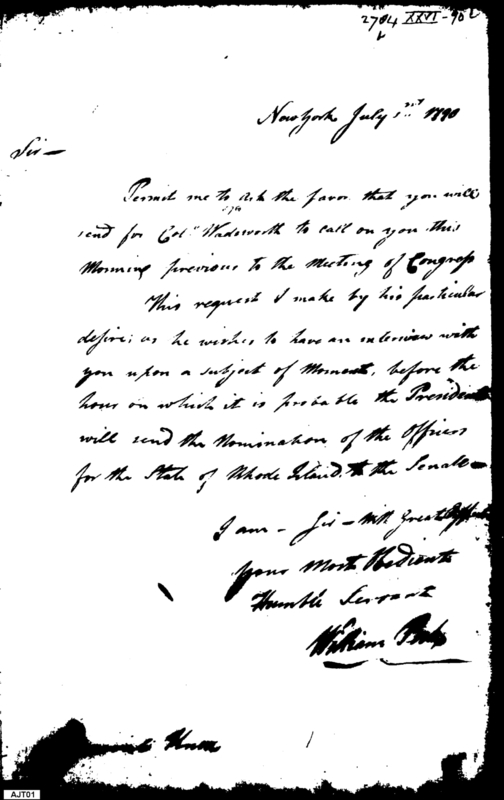 2704 XXVI-90
New York July 1st 1790
Sir—
Permit me to ask the favor that you will
send for Colº Wadsworth to call on you this
Morning previous to the Meeting of Congress
This request I make by his particular
desire; as he wishes to have an interview with
you upon a subject of Moment, before the
hour on which it is probable the President
will send the Nomination of the Officers
for the State of Rhode Island to the Senate—
I am — Sir — with Great
Your Most Obedient
Humble Servant
William
AJT01